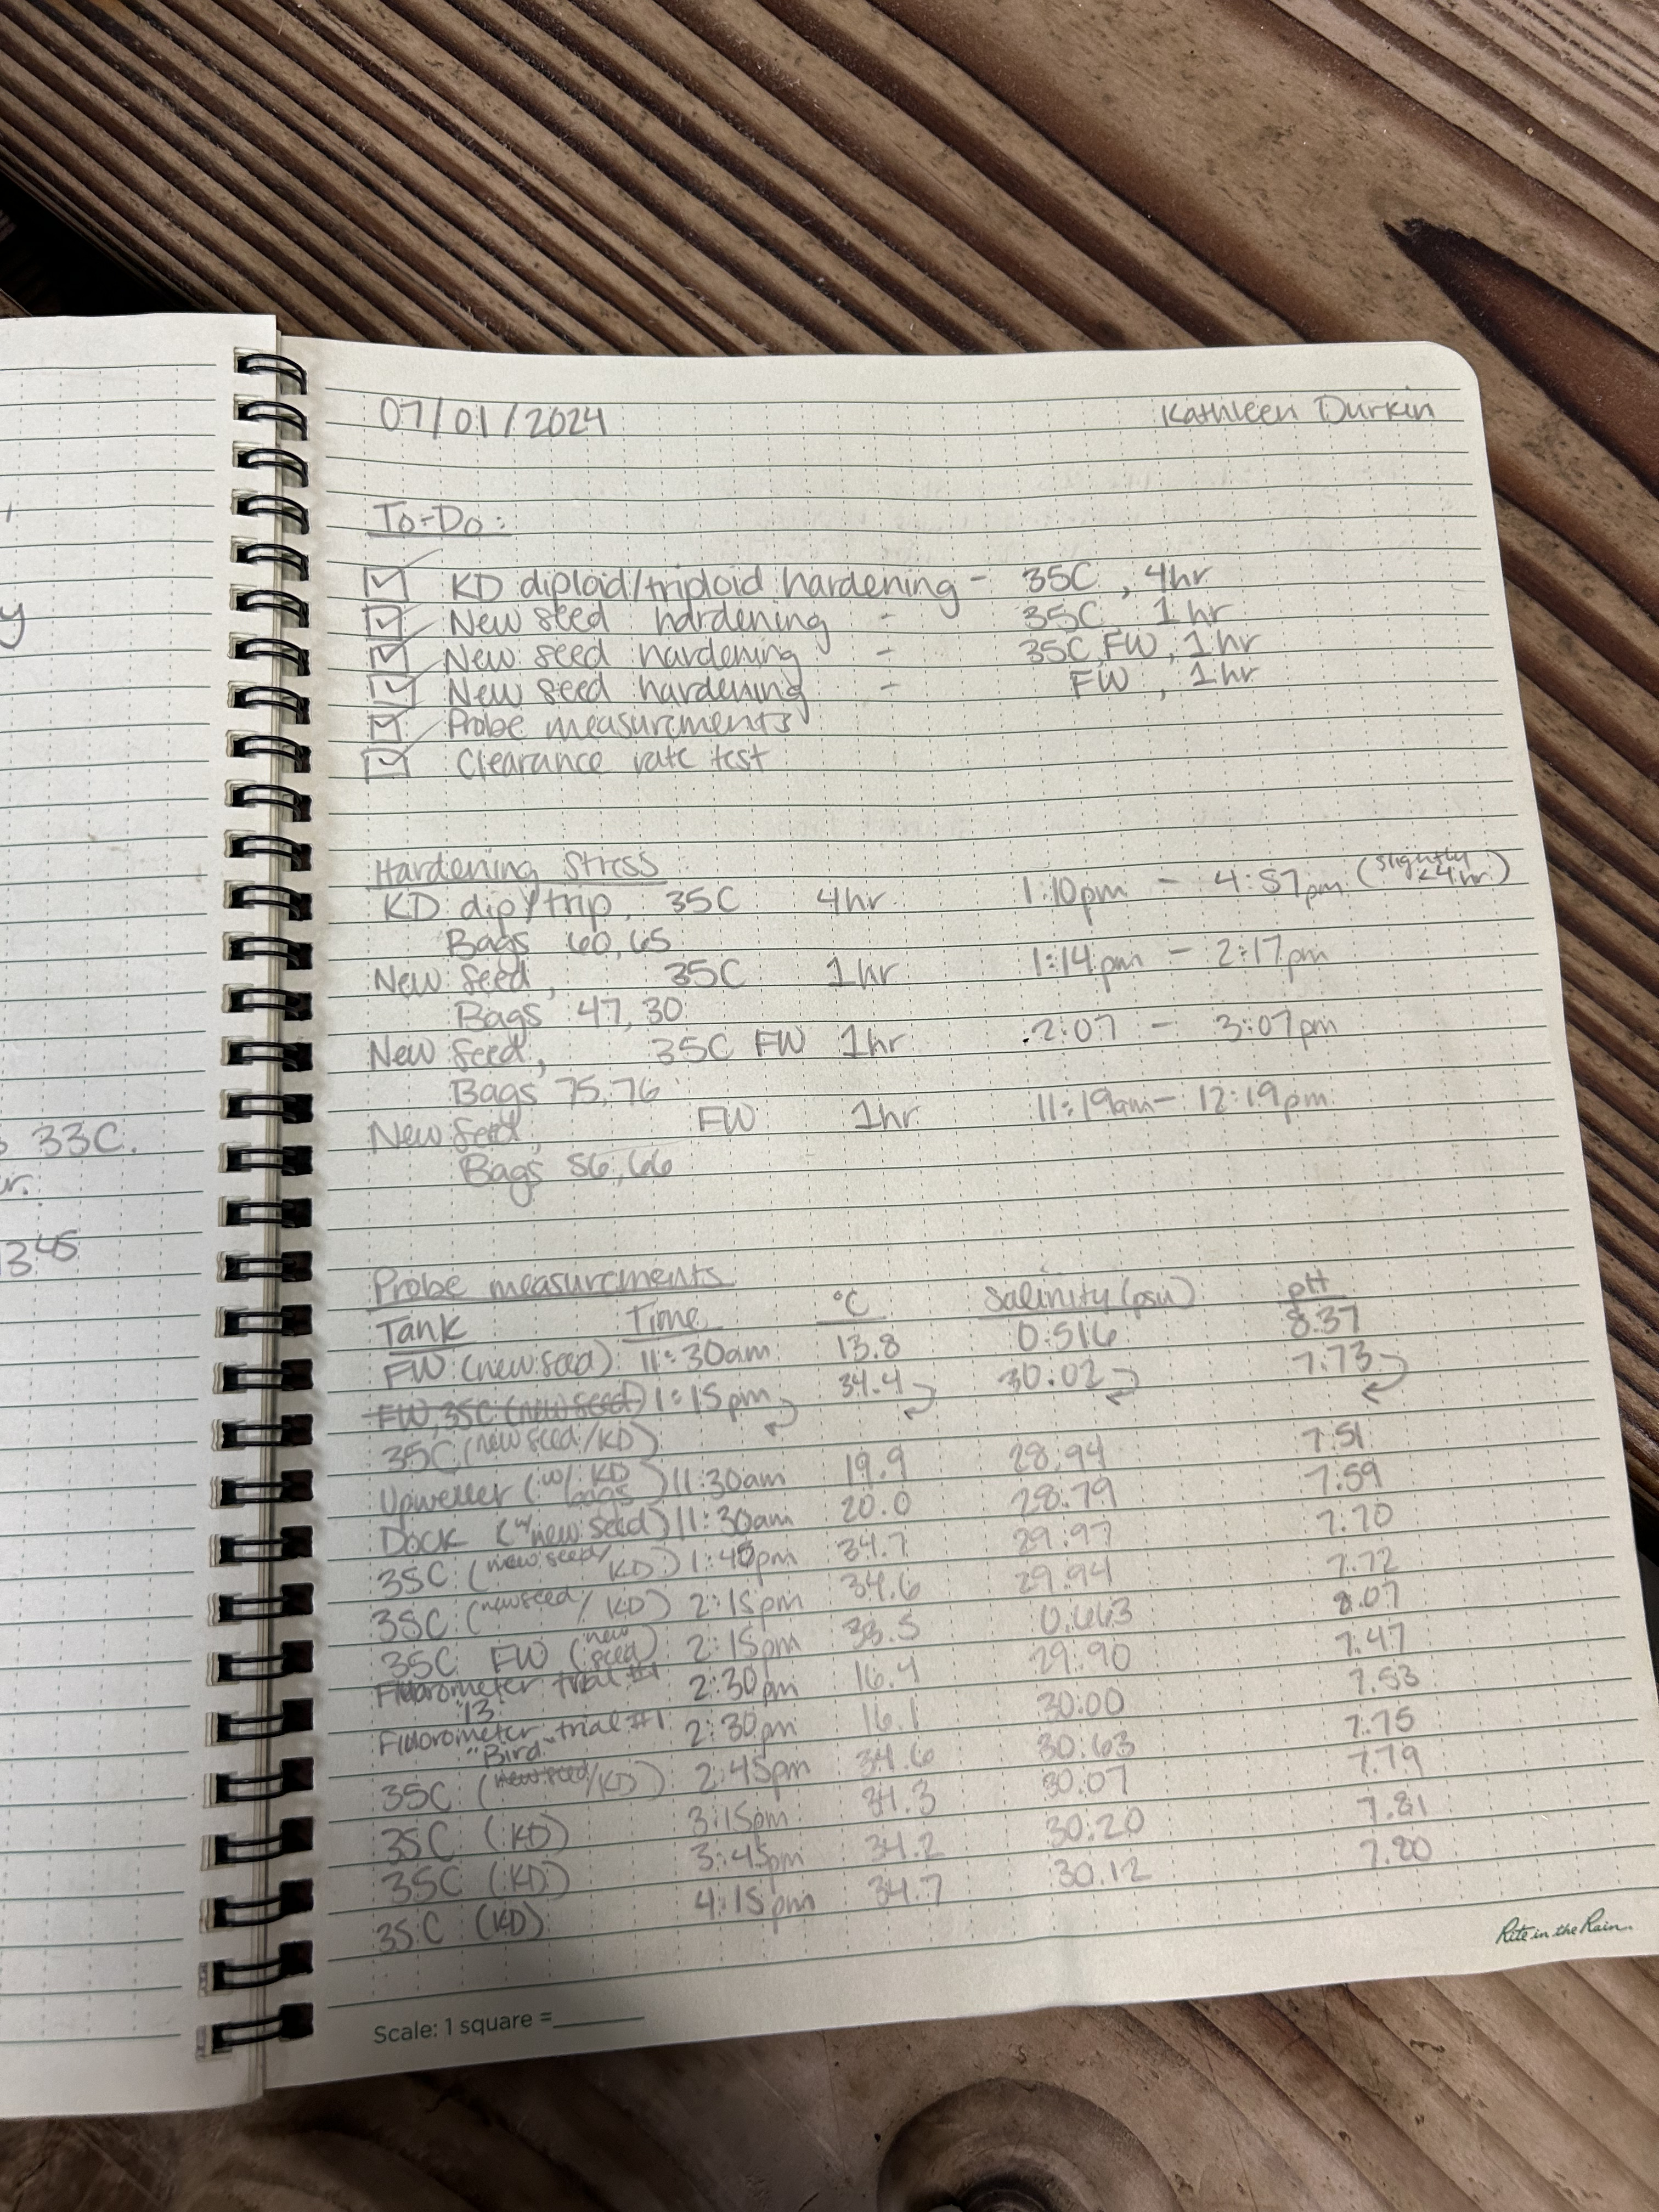 07/01/2024 Kathleen Durkin
To-Do:
KD diploid/triploid hardening - 35C, 4hr
New seed hardening - 35C, 1hr
New seed hardening - 35C, FW, 1hr
New seed hardening - FW, 1hr
Probe measurements
Clearance rate test
Hardening Stress
KD dip/trip, 35C 4hr 1:10pm - 4:57pm (slightly <4hr)
Bags 60, 65
New seed, 35C 1hr 1:14pm - 2:17pm
Bags 47, 30
New seed, 35C FW 1hr 2:07 - 3:07pm
Bags 75, 76
New seed, FW 1hr 11:19am - 12:19pm
Bags 56, 66
Probe measurements
Tank Time °C Salinity (psu) pH
FW (new seed) 11:30am 13.8 0.516 8.37
FW, 35C (new seed) 1:15pm 34.4 30.02 7.73
35C (new seed/KD)
Upweller (w/ KD bags) 11:30am 19.9 28.94 7.51
Dock (w/ new seed) 11:30am 20.0 28.79 7.59
35C (new seed/KD) 1:45pm 34.7 29.97 7.70
35C (new seed/KD) 2:15pm 34.6 29.94 7.72
35C FW (new seed) 2:15pm 33.5 0.663 8.07
Fluorometer trial #1 "13" 2:30pm 16.4 29.90 7.47
Fluorometer trial #1 "Bird" 2:30pm 16.1 30.00 7.53
35C (new seed/KD) 2:45pm 34.6 30.63 7.75
35C (KD) 3:15pm 34.3 30.07 7.79
35C (KD) 3:45pm 34.2 30.20 7.81
35C (KD) 4:15pm 34.7 30.12 7.80
Rite in the Rain
Scale: 1 square =
y
33C.
r.
1345